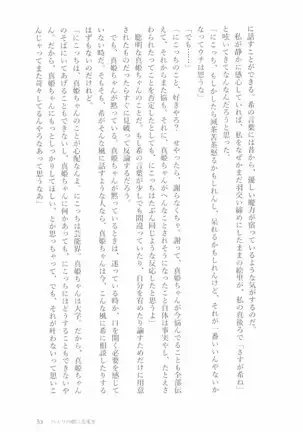 に話すことができる。希の言葉には昔から、優しい魔力が宿っているような気がするのだ。
私が静かに感心していれば、どうしてかなぜかまだ羽交い締めにしたままの絵里が、私の真後ろで「さすが希ね」
と呟いていて、なんなんだろうと思った。
「にこっち、もしかしたら滅茶苦茶怒るかもしれんし、呆れるかもしれんけど、それが一番いいんやないか
なってウチは思うな」
「でも……」
「にこっちのこと、好きやろ？ せやったら、謝らなくちゃ。謝って、真姫ちゃんが今悩んでることも全部伝
えて、それからまた悩も。それに、にこっちに言われたことでも、それはそうなったこと自体は事実やし、たとえさ
われたってことを否定したとしても、にこっちはたぶん同じような反応したと思うよ」
聡明な真姫ちゃんのことだから、もし希の言葉が少しでも間違っていたり、自分を宥めたり諭すためだけに用意
されたものだったらすぐに見破って反論するだろう。
真姫ちゃんが黙っているときは、迷っている時か、口を開く必要を感じて
いない時だ。そもそも、希がそんな風に話すような人なら、真姫ちゃんは今、こんな風に希に相談したりする
はずもないのだけれど。
「にこっちは、真姫ちゃんのことが心配なんよ。にこっちは芸能界、真姫ちゃんは大学。だから、真姫ちゃん
のそばにいてあげることもできないし、真姫ちゃんに何かあっても、にこっちにはどうすることもできないや
ん。だから、真姫ちゃんにもっとしっかりしてほしい、とか思っちゃって、でも、それが叶わないって思いこ
んじゃってまた苛々してるんやろなあって思うなあ」
53